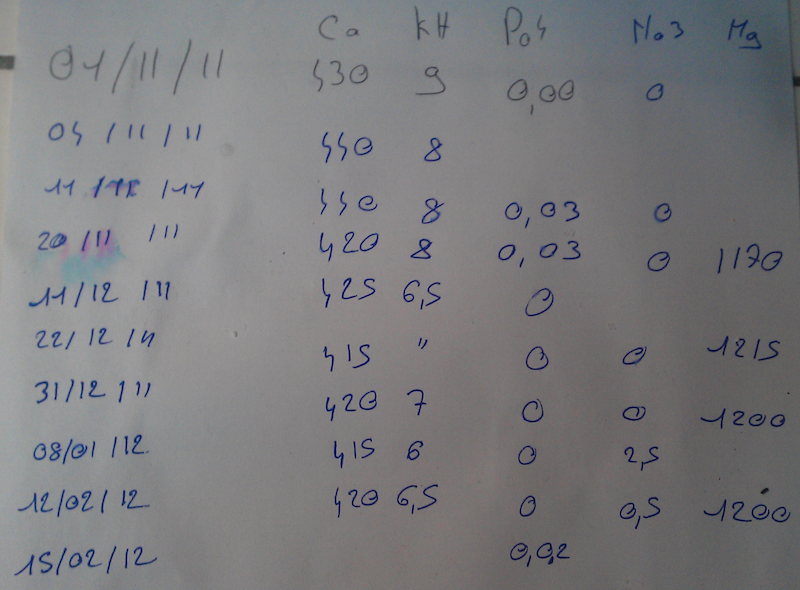 Ca kH Po4 No3 Mg
01/11/11 430 9 0,00 0
04/11/11 440 8
11/11/11 440 8 0,03 0
20/11/11 420 8 0,03 0 1170
11/12/11 425 6,5 0
22/12/11 415 " 0 0 1215
31/12/11 420 7 0 0 1200
08/01/12 415 6 0 2,5
12/02/12 420 6,5 0 0,5 1200
15/02/12 0,02